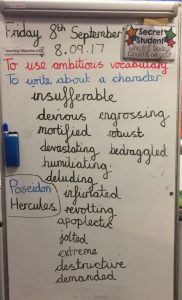 Friday 8th September
8.09.17
Secret Student
Learning Objective (LO)
To use ambitious vocabulary
To write about a character
insufferable
devious engrossing
mortified robust
devastating bedraggled
humiliating
deluding
Poseidon infuriated
Hercules revolting
apoplectic
jolted
extreme
destructive
demanded